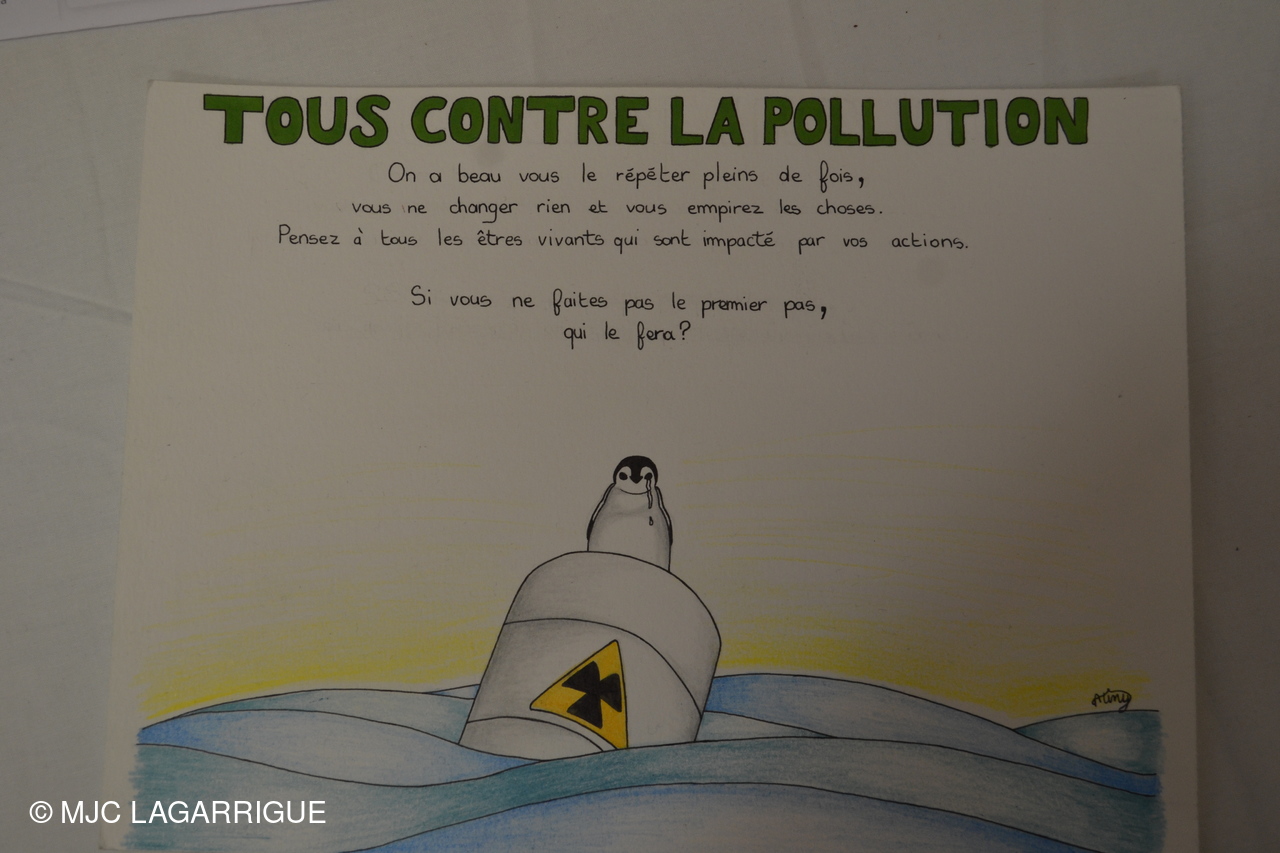 TOUS CONTRE LA POLLUTION
On a beau vous le répéter pleins de fois,
vous ne changer rien et vous empirez les choses.
Pensez à tous les êtres vivants qui sont impacté par vos actions.
Si vous ne faites pas le premier pas,
qui le fera?
© MJC LAGARRIGUE